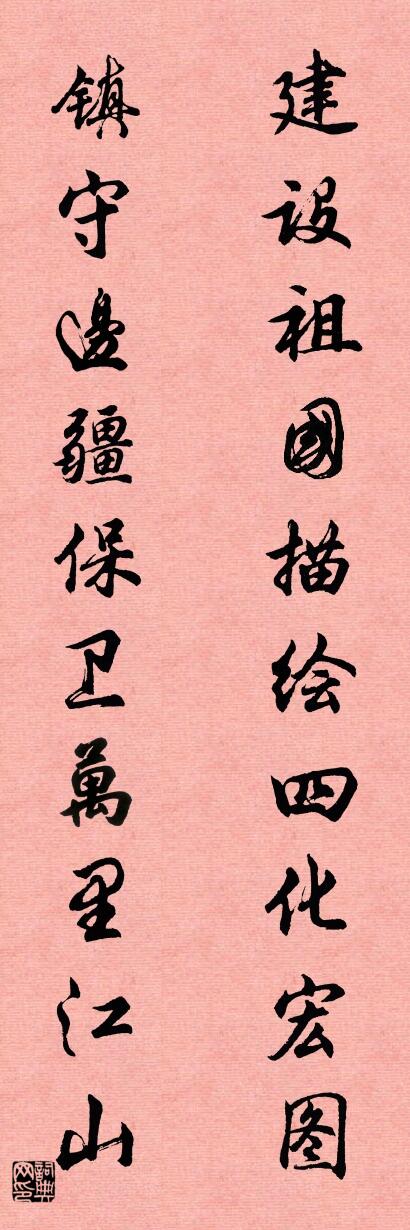 建设祖國描绘四化宏图
镇守邊疆保卫萬里江山
詞典网印